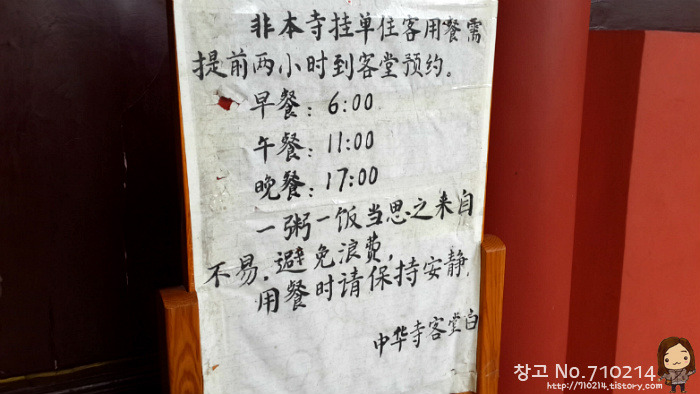 非本寺挂单住客用餐需
提前两小时到客堂预约。
早餐：6:00
午餐：11:00
晚餐：17:00
一粥一饭当思之来自
不易.避免浪费,
用餐时请保持安静.
中华寺客堂白
창고 No.710214
http://710214.tistory.com/